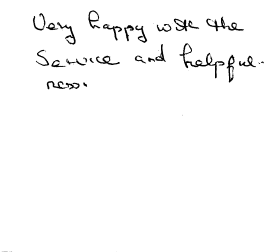 Very happy with the
Service and helpful-
ness.